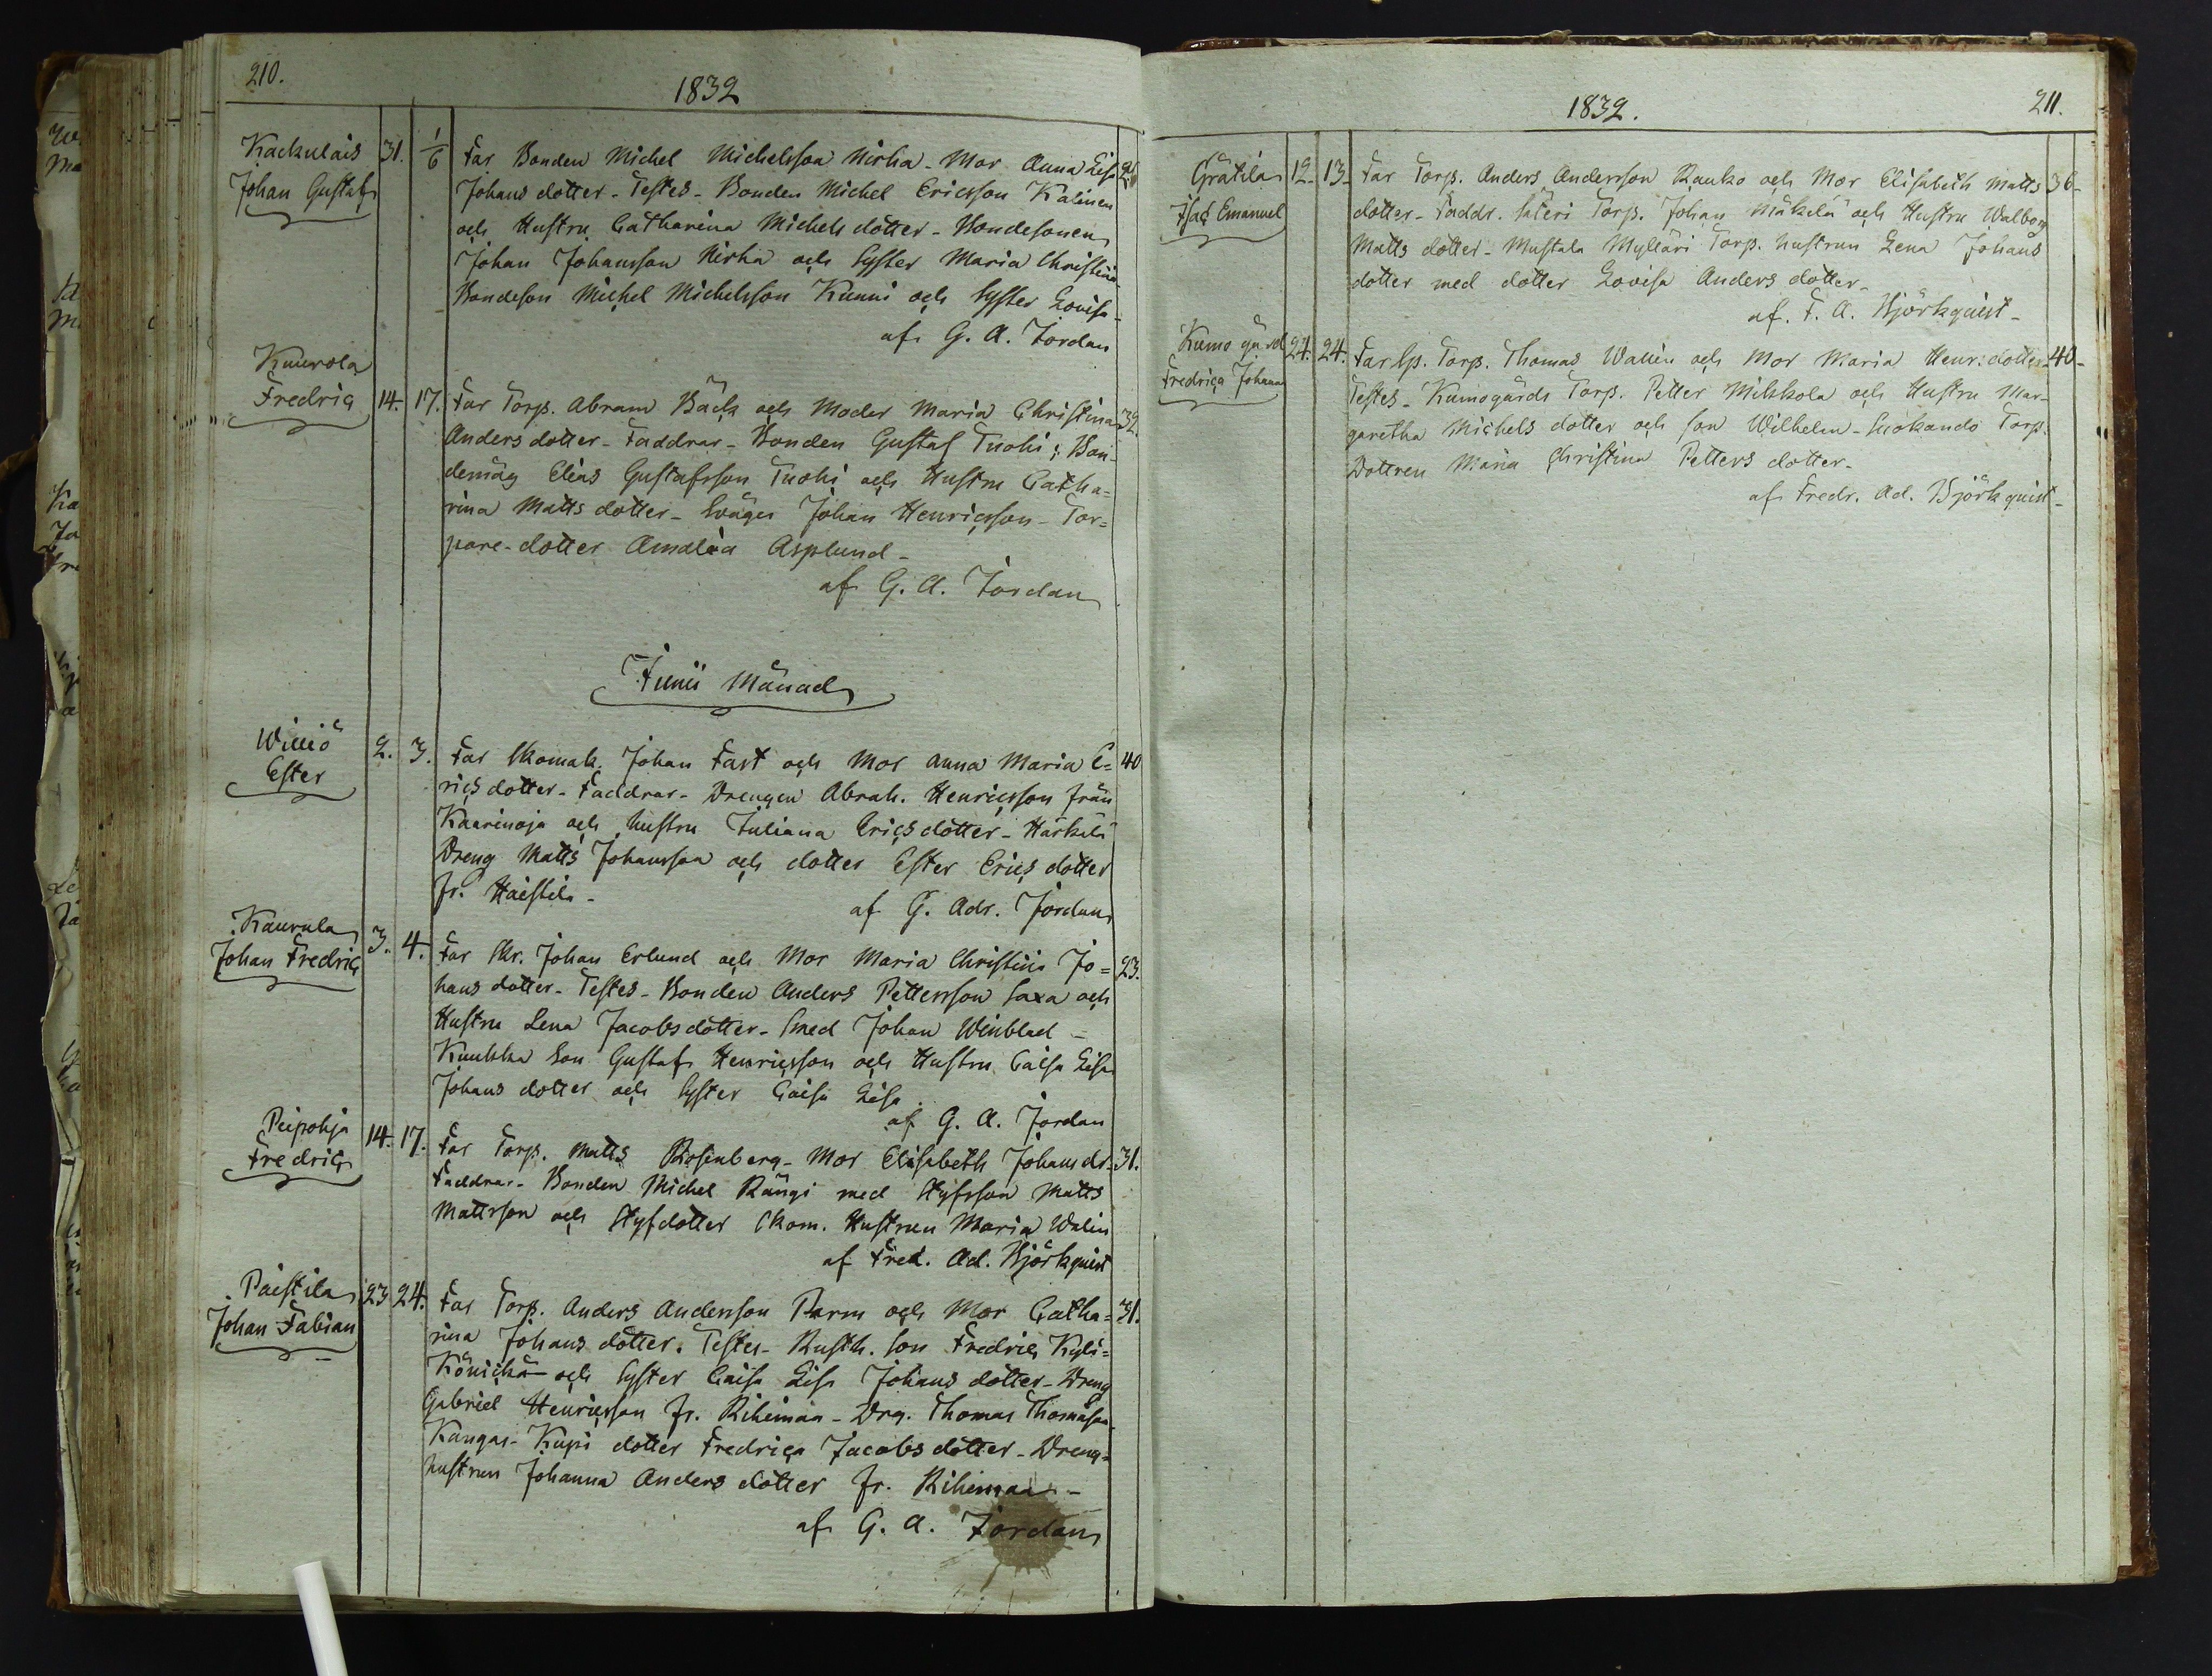 210.
1832
Kackulais 31. 1/6 Far Bonden Michel Michelsson Nirha - Mor Anna Lisa
Johan Gustaf Johans dotter - Testes - Bonden Michel Ericsson Kälinen
och Hustru Catharina Michels dotter - Bondesonen
Johan Johansson Nirha och Syster Maria Christina
Bondeson Michel Michelsson Kunni och Syster Lovisa -
af G. A. Jordan
Kuurola
Fredric 14. 17. Far Torp. Abram Bäck och Moder Maria Christina 32.
Anders dotter - Faddrar - Bonden Gustaf Tuohi; Bon-
demåg Elias Gustafsson Tuohi och Hustru Catha=
rina Matts dotter - Svåger Johan Henricsson - Tor=
pare-dotter Amalia Asplund -
af G. A. Jordan
Junii Månad
Williö 2. 3. Far Skomak. Johan Fast och Mor Anna Maria E= 40
Ester rics dotter - Faddrar - Drengen Abrah. Henricsson från
Kaarinoja och hustru Juliana Erics dotter - Härkälä
Dreng Matts Johansson och dotter Ester Erics dotter
fr. Haistila -
af G. Adr. Jordan
Kaurula 3. 4. Far Skr. Johan Erlund och Mor Maria Christina Jo= 23.
Johan Fredric hans dotter - Testes - Bonden Anders Pettersson Saxa och
Hustru Lena Jacobs dotter - Smed Johan Winblad -
Kuukka Son Gustaf Henricsson och Hustru Caisa Lisa
Johans dotter och Syster Caisa Lisa.
af G. A. Jordan
Peipohja 14. 17. Far Torp. Matts Rosenberg - Mor Elisabeth Johansdr. 31.
Fredric Faddrar - Bonden Michel Rängi med Styfsson Matts
Mattsson och Styfdotter Skom. Hustrun Maria Walin
af Fred. Ad. Björkquist
Paistila 23 24. Far Torp. Anders Andersson Parm och Mor Catha= 31.
Johan Fabian rina Johans dotter. Testes - Rusth. Son Fredric Kyli=
Könickä och Syster Caisa Lisa Johans dotter - Dreng
Gabriel Henricsson fr. Rihimaa - Drg. Thomas Thomasson
Kangas - Kupi dotter Fredrica Jacobs dotter - Dreng=
hustrun Johanna Anders dotter fr. Rihimaa -
af G. A. Jordan
1832.
211.
Grätilä 12. 13. Far Torp. Anders Andersson Rauko och Mor Elisabeth Matts 36-
Isac Emanuel dotter - Faddr. Säteri Torp. Johan Mäkelä och Hustru Walborg
Matts dotter - Mustala Mylläri Torp. hustrun Lena Johans
dotter med dotter Lovisa Anders dotter -
af. F. A. Björkquist -
Kumo gård 24. 24. Far Sp. Torp. Thomas Wallin och Mor Maria Henr: dotter 40-
Fredrica Johanna Testes - Kumogårds Torp. Petter Mikkola och Hustru Mar-
garetha Michels dotter och son Wilhelm - Suokando Torp.
Dottren Maria Christina Petters dotter -
af Fredr. Ad. Björkquist -